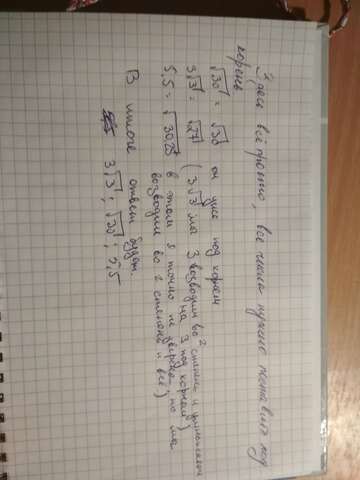 Здесь всё просто, все числа нужно поставить под
корень
√30 = √30 он уже под корнем
3√3 = √27 (3√3 мы 3 возводим во 2 степень и умножаем
на 3 под корнем)
5,5 = √30,25 в этом я точно не уверена, но мы
возводим во 2 степень и всё)
В итоге ответ будет:
3√3; √30; 5,5